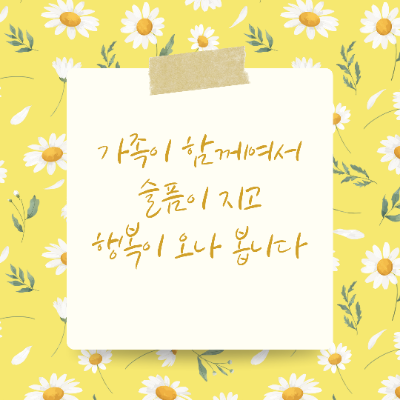 가족이 함께여서
슬픔이 지고
행복이 오나 봅니다